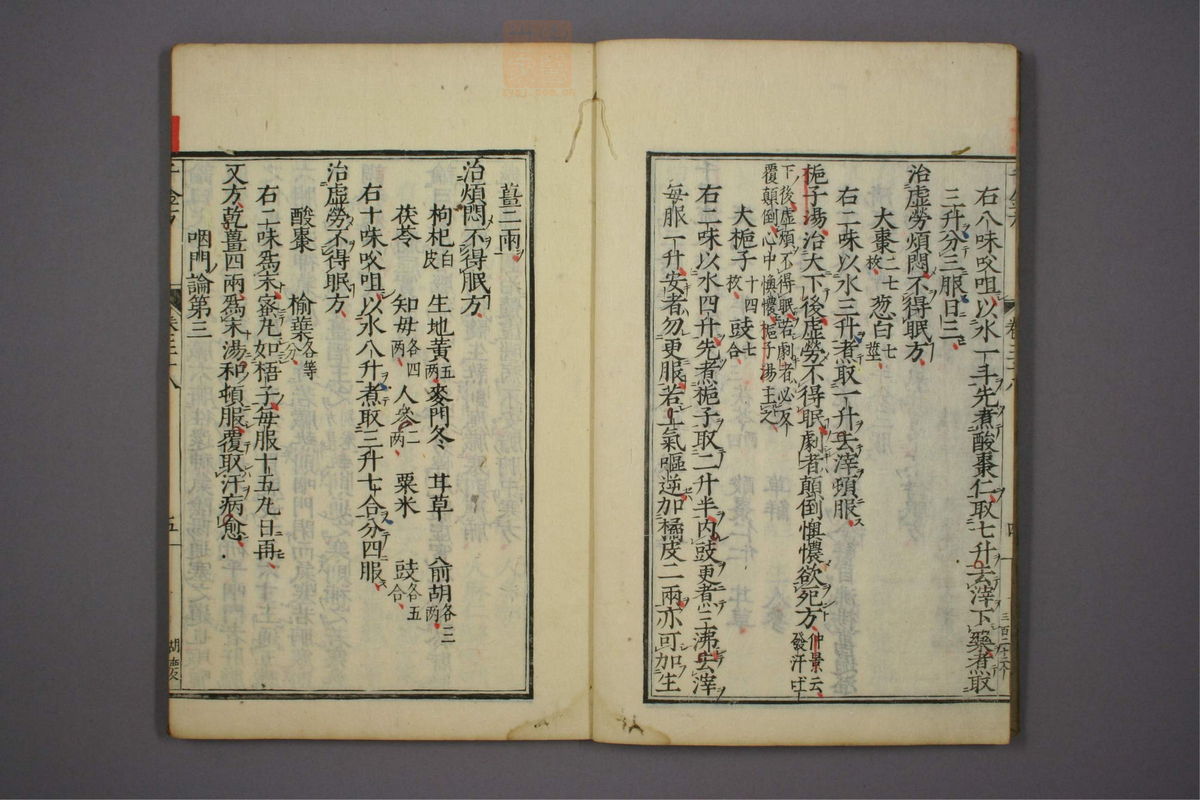 右八味㕮咀以水一斗先煮酸棗仁取七升去滓下藥煮取
三升分三服日三
治虛勞煩悶不得眠方
大棗二七枚 葱白七莖
右二味以水三升煮取一升去滓頓服
梔子湯治大下後虛勞不得眠劇者顛倒懊憹欲死方仲景云發汗吐
下後虛煩不得眠若劇者必反
覆顛倒心中懊憹梔子湯主之
大梔子十四枚 豉七合
右二味以水四升先煮梔子取二升半內豉更煮三沸去滓
每服一升安者勿更服若上氣嘔逆加橘皮二兩亦可加生
薑二兩
治煩悶不得眠方
枸杞白皮 生地黃五兩 麥門冬 甘草 前胡各三兩
茯苓 知母各四兩 人參二兩 粟米 豉各五合
右十味㕮咀以水八升煮取三升七合分四服
治虛勞不得眠方
酸棗 榆葉各等分
右二味爲末蜜丸如梧子每服十五丸日再
又方乾薑四兩爲末湯和頓服覆取汗病愈
咽門論第三
五